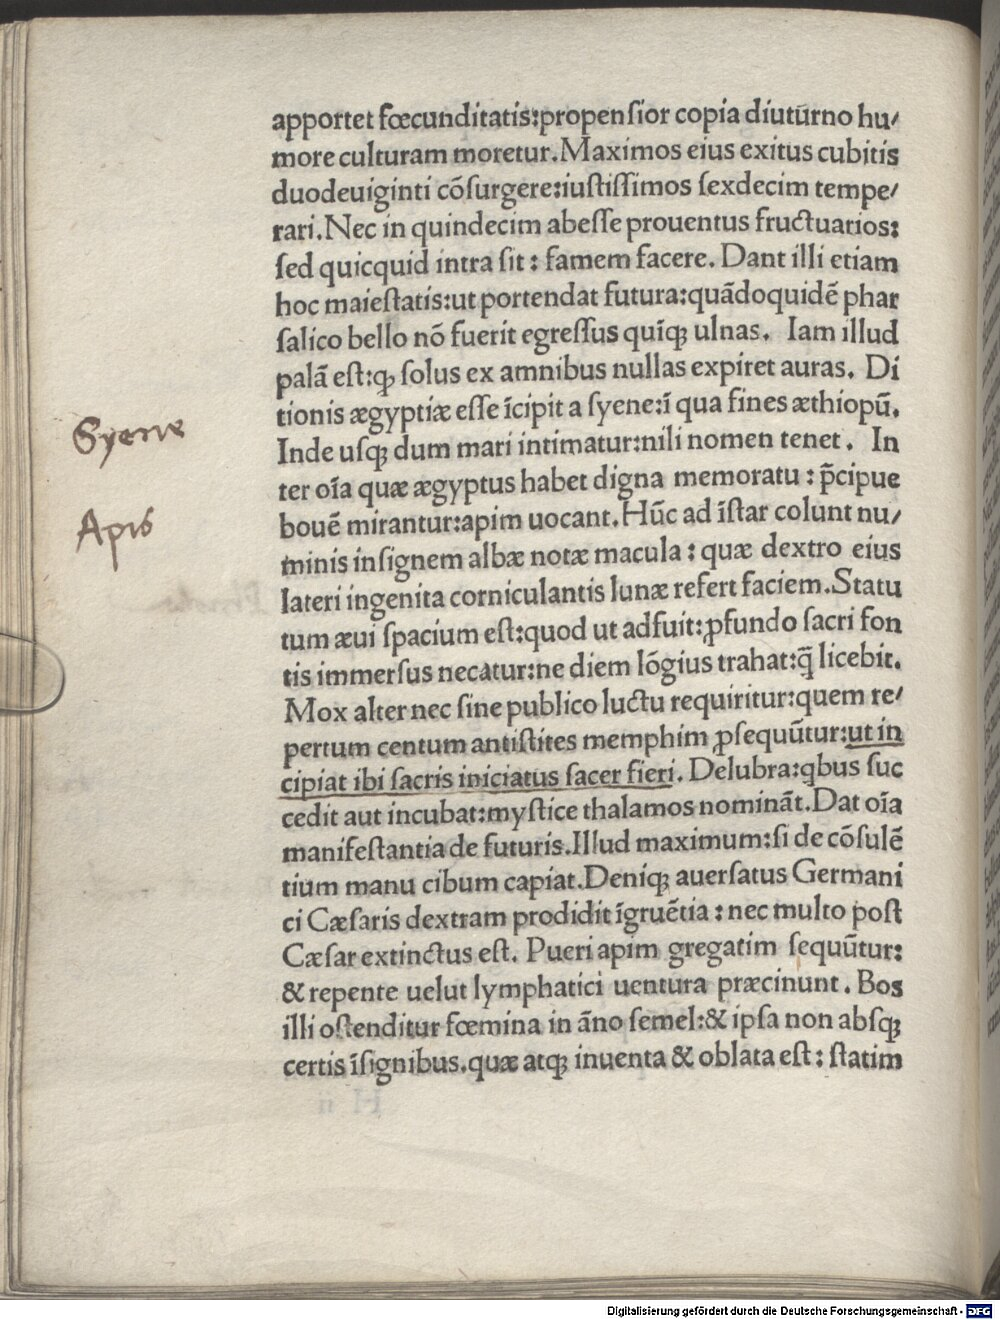 apportet fœcunditatis:propenſior copia diuturno hu/
more culturam moretur.Maximos eius exitus cubitis
duodeuiginti cõſurgere:iuſtiſſimos ſexdecim tempe/
rari.Nec in quindecim abeſſe prouentus fructuarios:
ſed quicquid intra ſit: famem facere. Dant illi etiam
hoc maieſtatis:ut portendat futura:quãdoquidẽ phar
ſalico bello nõ fuerit egreſſus quĩqꝫ ulnas. Iam illud
palã eſt:ꝙ ſolus ex amnibus nullas expiret auras. Di
tionis ægyptiæ eſſe ĩcipit a ſyene:ĩ qua fines æthiopũ.
Inde uſqꝫ dum mari intimatur:nili nomen tenet. In
ter oĩa quæ ægyptus habet digna memoratu: p̃cipue
bouẽ mirantur:apim uocant.Hũc ad ĩſtar colunt nu/
minis inſignem albæ notæ macula: quæ dextro eius
lateri ingenita corniculantis lunæ refert faciem.Statu
tum æui ſpacium eſt:quod ut adfuit:ꝓfundo ſacri fon
tis immerſus necatur:ne diem lõgius trahat:q̃ licebit.
Mox alter nec ſine publico luctu requiritur:quem re/
pertum centum antiſtites memphim ꝓſequũtur:ut in
cipiat ibi ſacris iniciatus ſacer fieri. Delubra:qbus ſuc
cedit aut incubat:myſtice thalamos nominãt.Dat oĩa
manifeſtantia de futuris.Illud maximum:ſi de cõſulẽ
tium manu cibum capiat.Deniqꝫ auerſatus Germani
ci Cæſaris dextram prodidit ĩgruẽtia: nec multo poſt
Cæſar extinctus eſt. Pueri apim gregatim ſequũtur:
& repente uelut lymphatici uentura præcinunt. Bos
illi oſtenditur fœmina in ãno ſemel:& ipſa non abſqꝫ
certis ĩſignibus.quæ atqꝫ inuenta & oblata eſt: ſtatim
Syene
Apis
Digitalisierung gefördert durch die Deutsche Forschungsgemeinschaft - DFG